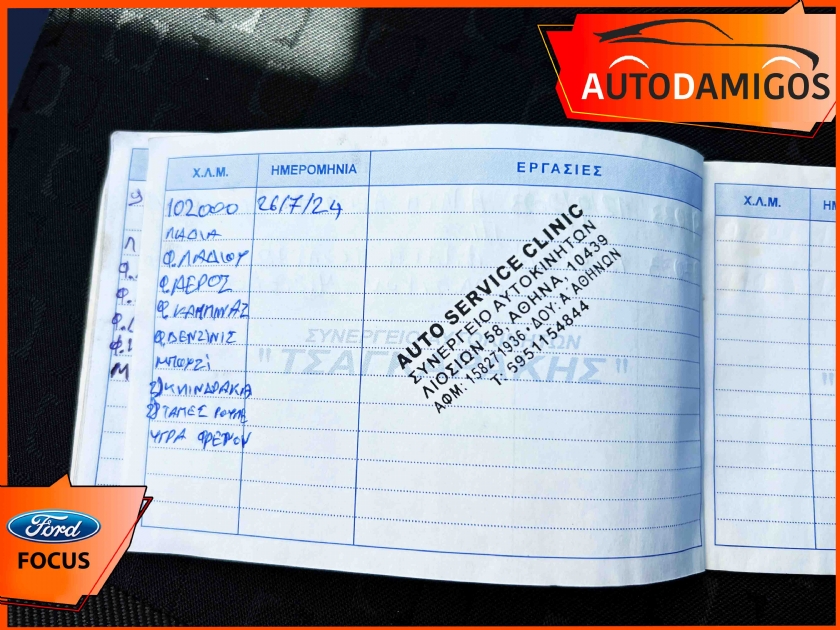 AUTODAMIGOS
Χ.Λ.Μ. ΗΜΕΡΟΜΗΝΙΑ ΕΡΓΑΣΙΕΣ
102000 26/7/24
ΛΑΔΙΑ
Φ.ΛΑΔΙΟΥ
Φ.ΑΕΡΟΣ
Φ.ΚΑΜΠΙΝΑΣ
Φ.ΒΕΝΖΙΝΙΣ
ΜΠΟΥΖΙ
2) ΚΙΛΙΝΔΡΑΚΙΑ
2) ΤΑΠΕΣ
ΥΓΡΑ ΦΡΕΝΩΝ
AUTO SERVICE CLINIC
ΣΥΝΕΡΓΕΙΟ ΑΥΤΟΚΙΝΗΤΩΝ
ΛΙΟΣΙΩΝ 58, ΑΘΗΝΑ, 10439
ΑΦΜ: 158271936 · ΔΟΥ: Α ΑΘΗΝΩΝ
Τ: 5951154844
ΣΥΝΕΡΓΕΙΟ
Χ.Λ.Μ. ΗΜ
Ford
FOCUS